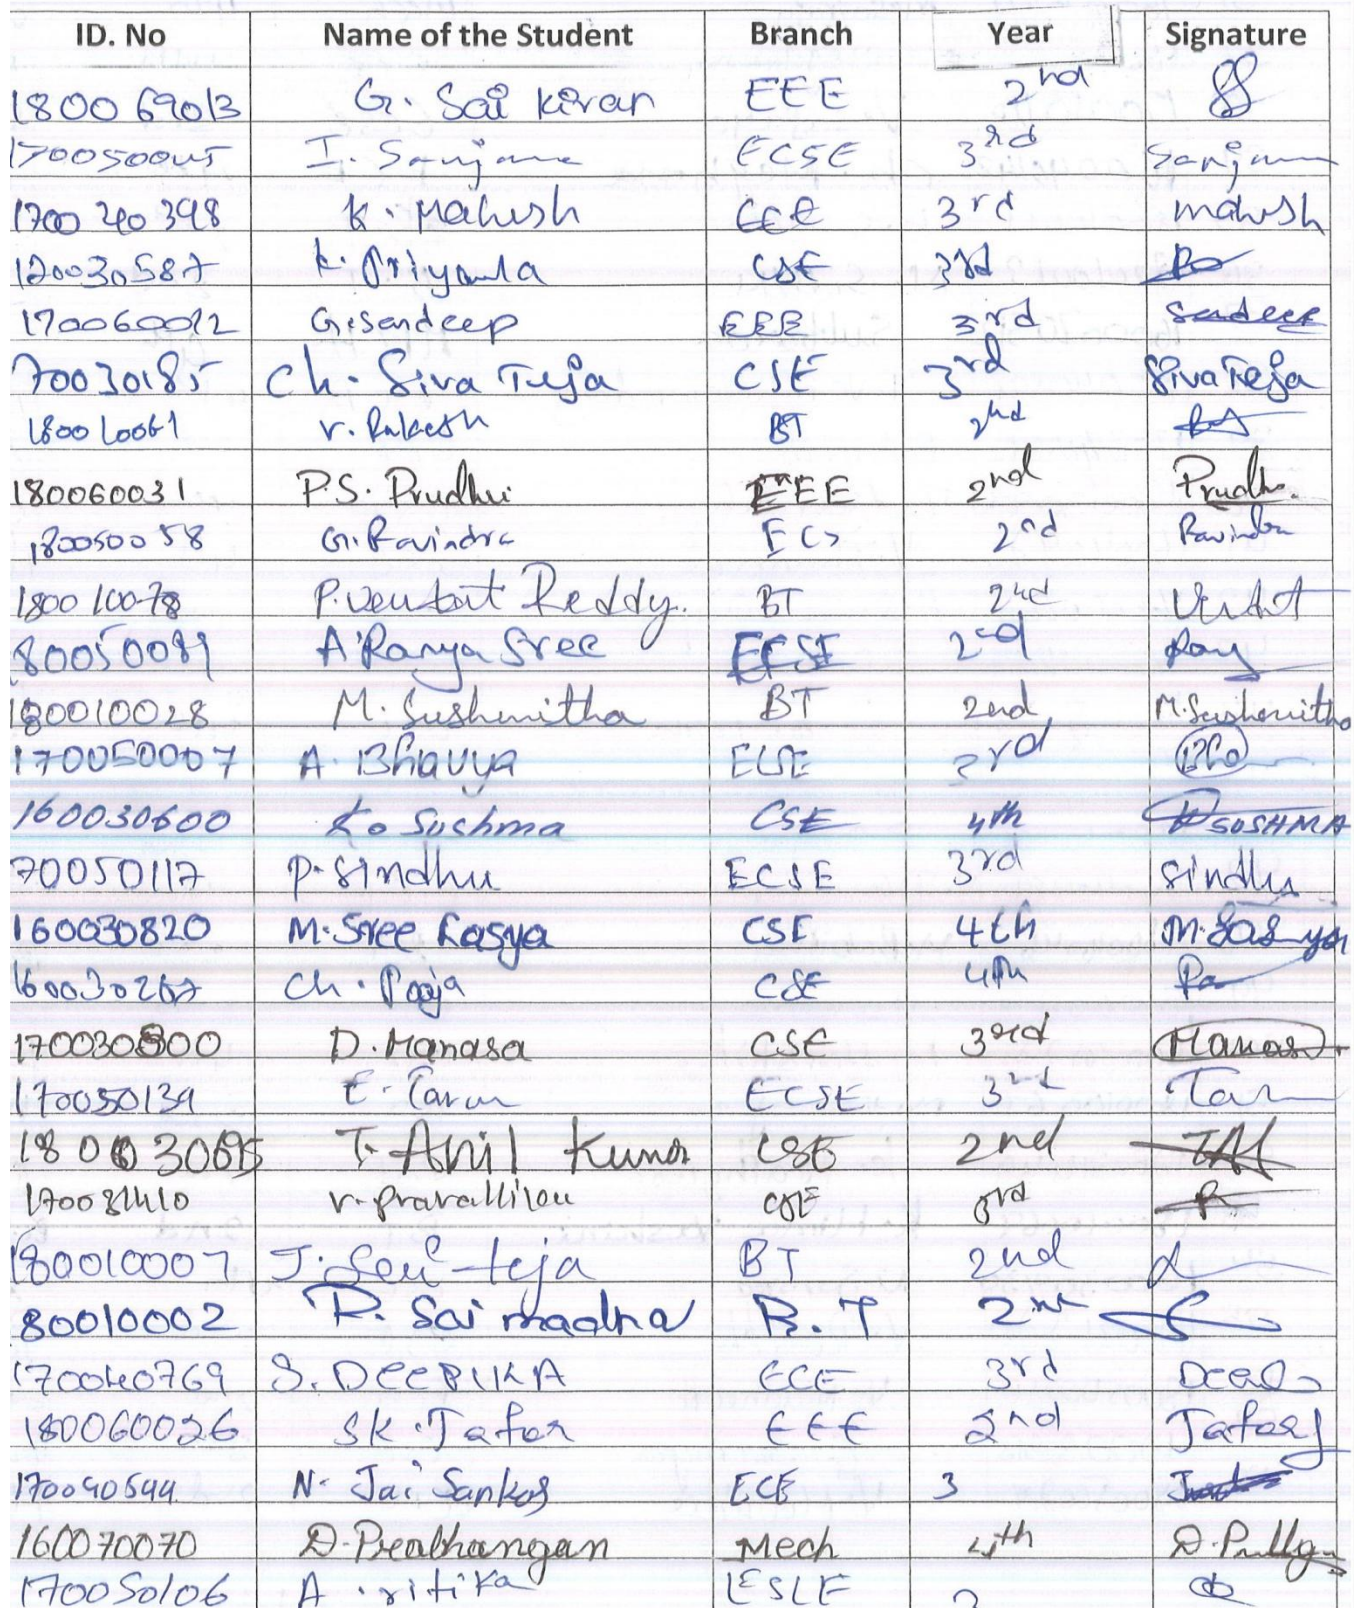 ID. No Name of the Student Branch Year Signature
180069013 G. Sai Kiran EEE 2nd
170050045 I. Sanjana ECSE 3rd Sanjana
170040398 K. Mahesh ECE 3rd mahesh
170030587 K. Priyanka CSE 3rd
170060012 G. Sandeep EEE 3rd Sandeep
70030185 Ch. Siva Teja CSE 3rd Siva Teja
180010061 V. Rakesh BT 2nd
180060031 P.S. Prudhvi EEE 2nd Prudhvi
180050058 G. Ravindra ECS 2nd Ravindra
180010078 P. Venkat Reddy. BT 2nd
80050089 A Ramya Sree ECSE 2nd Ramy
180010028 M. Sushmitha BT 2nd M. Sushmitha
170050007 A. Bhavya ECSE 3rd Bha
160030600 K. Sushma CSE 4th SUSHMA
70050117 P. Sindhu ECSE 3rd Sindhu
160030820 M. Sree Lasya CSE 4th M. Lasya
160030267 Ch. Pooja CSE 4th
170030300 D. Manasa CSE 3rd Manasa
170050139 E. Tarun ECSE 3rd Tarun
180030695 T. Anil Kumar CSE 2nd
170031410 V. Pravallika CSE 3rd
180010007 J. Sai teja BT 2nd
80010002 P. Sai madha B.T 2nd
170040769 S. DEEPIKA ECE 3rd Deep
180060026 SK. Jafar EEE 2nd Jafar
170040544 N. Jai Sankar ECE 3
160070070 D. Prabhangan Mech 4th
170050106 A. ritika ECSE 3